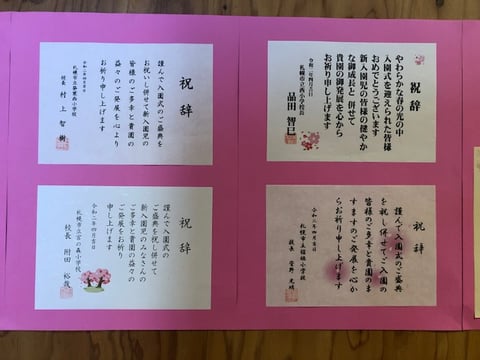 祝辞
やわらかな春の光の中
入園式を迎えられた皆様
おめでとうございます
新入園児の皆様の健やか
な御成長と併せて
貴園の御発展を心から
お祈り申し上げます
令和二年四月吉日
札幌市立西小学校長
品田 智巳
祝辞
謹んで入園式のご盛典を
お祝いし併せて新入園児の
皆様のご多幸と貴園の
益々のご発展を心より
お祈り申し上げます
令和二年四月吉日
校長 村上 智樹
祝辞
謹んで入園式のご盛典
を祝し併せてご入園の
皆様のご多幸と貴園のま
すますのご発展を心か
らお祈り申し上げます
令和二年四月吉日
祝辞
謹んで入園式の
ご盛典を祝し併せて
新入園児のみなさんの
ご多幸と貴園の益々の
ご発展をお祈り
申し上げます
令和二年四月吉日
札幌市立宮の森小学校
校長 附田 裕哉